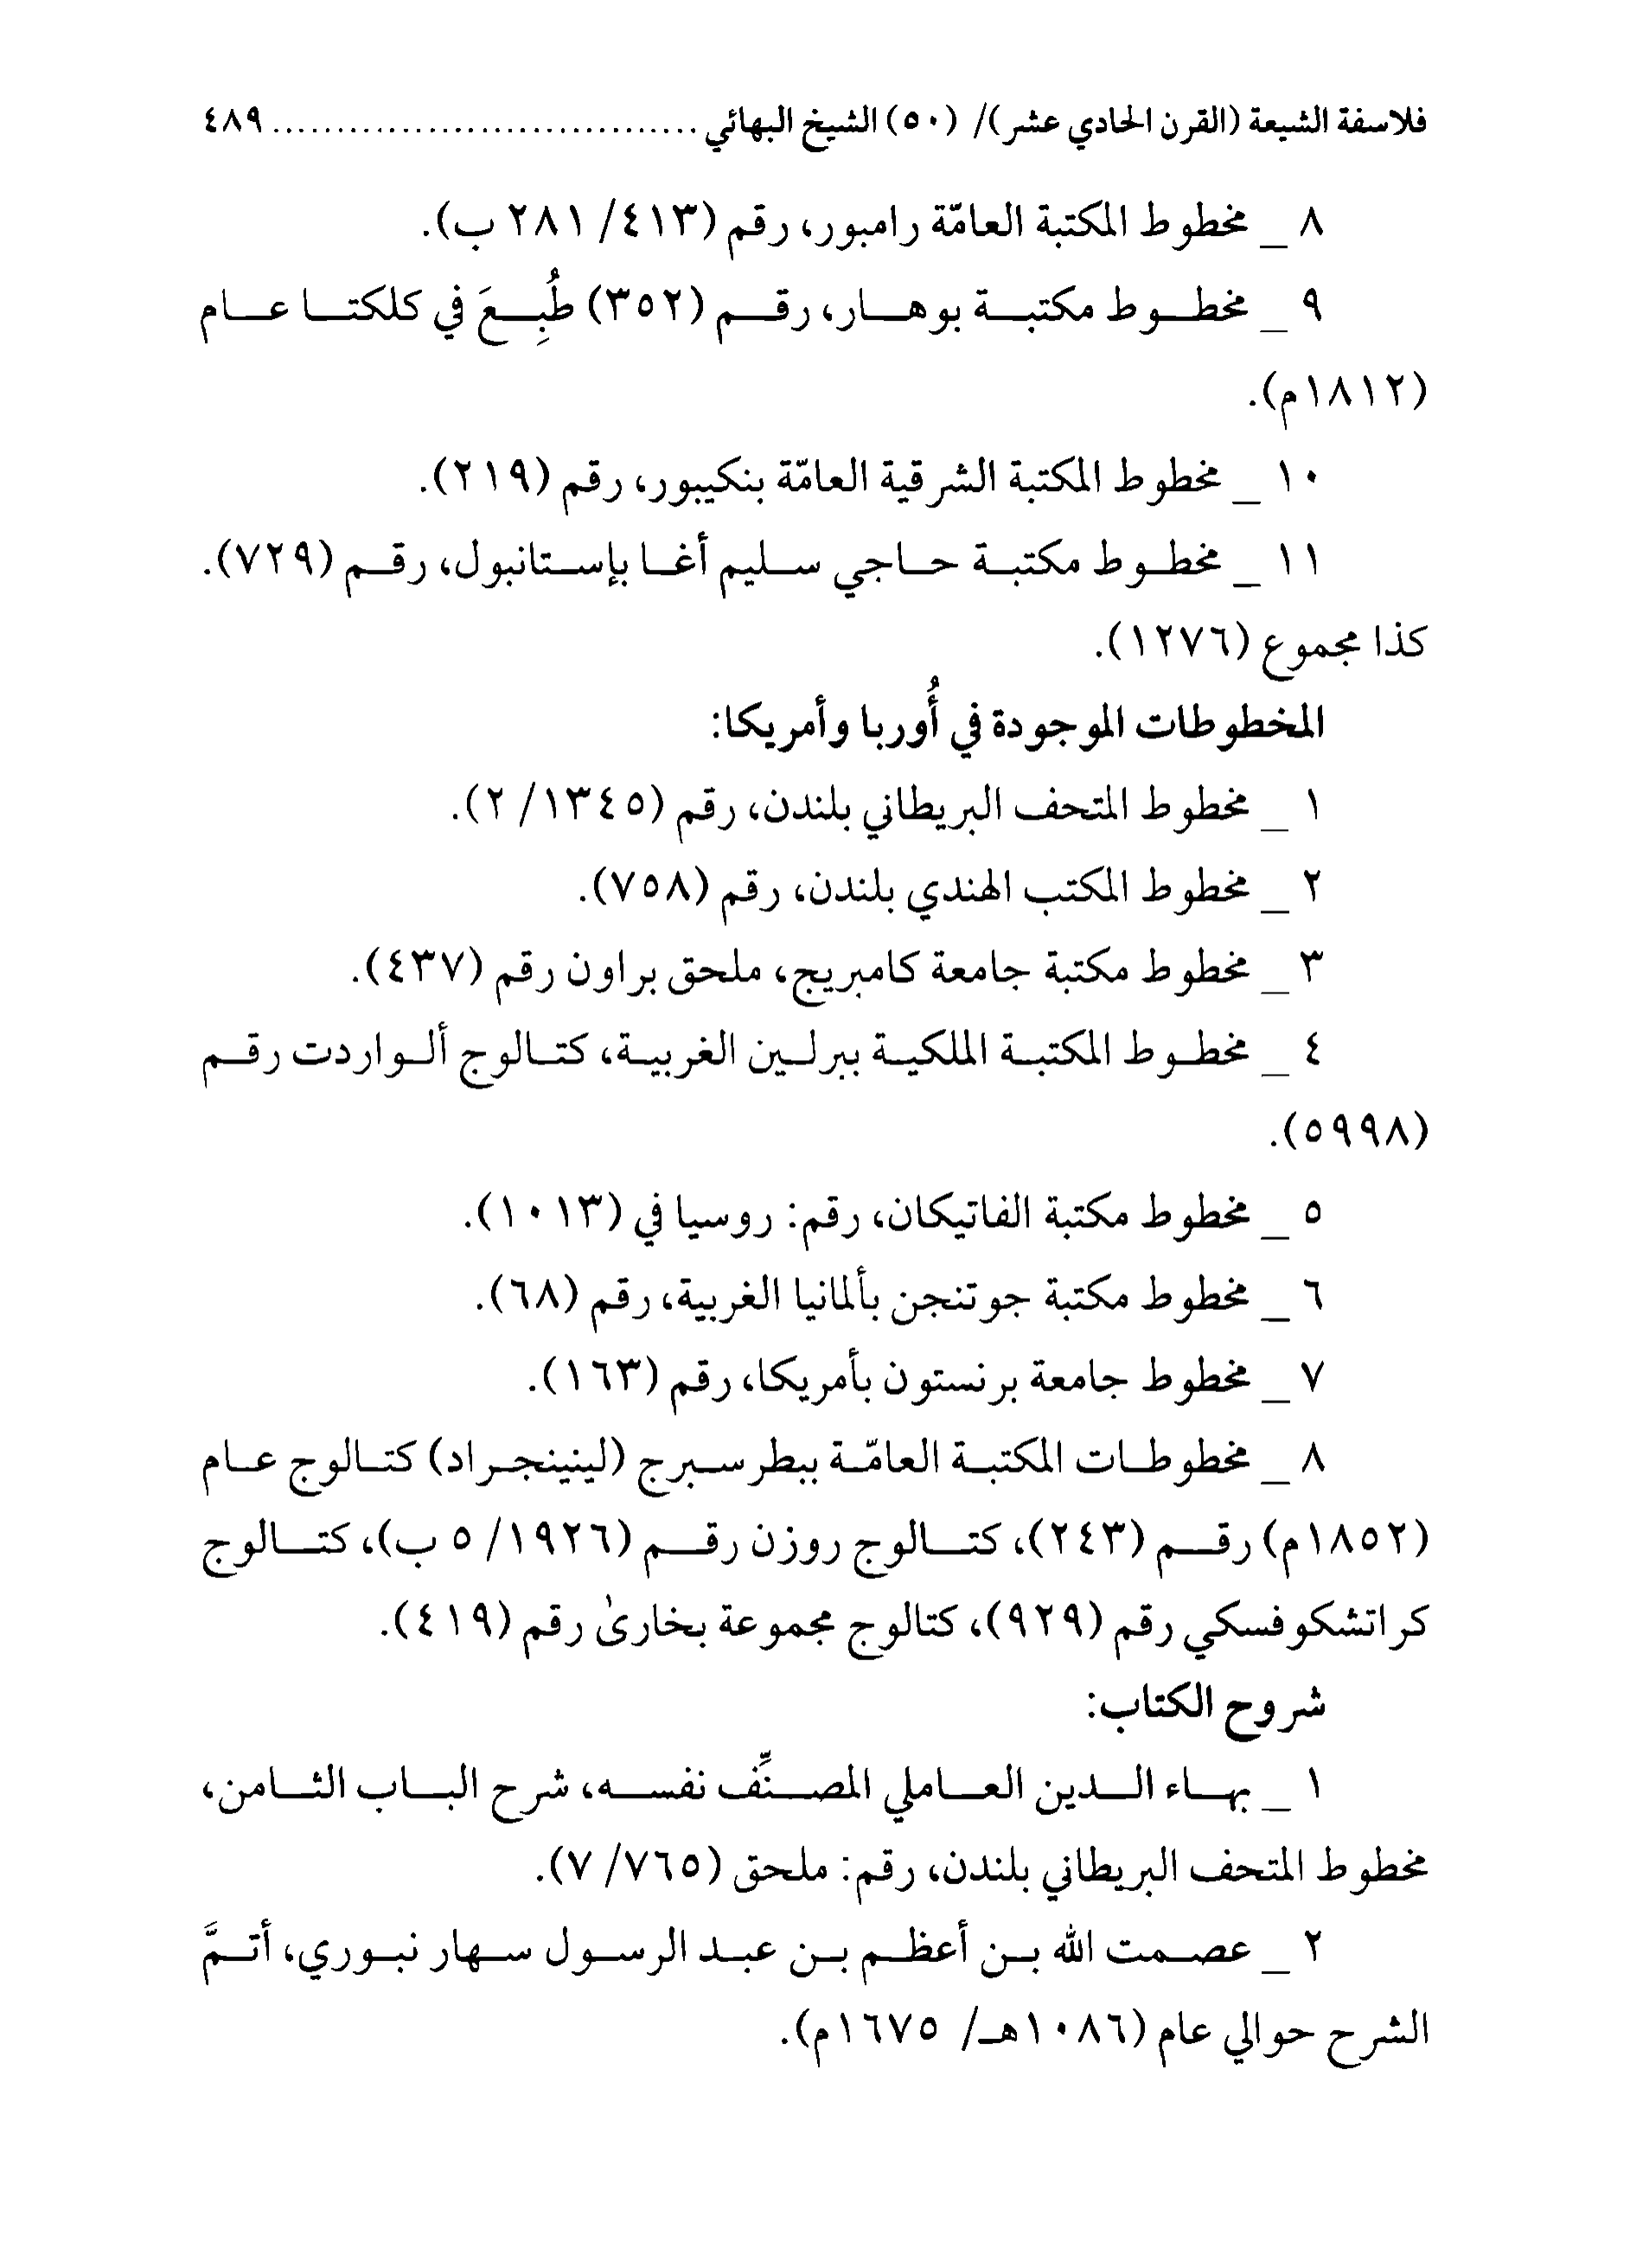 فلاسفة الشيعة (القرن الحادي عشر)/ (٥٠) الشيخ البهائي ................................. ٤٨٩
٨ _ مخطوط المكتبة العامّة رامبور، رقم (٤١٣/ ٢٨١ ب).
٩ _ مخطوط مكتبة بوهار، رقم (٣٥٢) طُبِعَ في كلكتا عام
(١٨١٢م).
١٠ _ مخطوط المكتبة الشرقية العامّة بنكيبور، رقم (٢١٩).
١١ _ مخطوط مكتبة حاجي سليم أغا بإستانبول، رقم (٧٢٩).
كذا مجموع (١٢٧٦).
المخطوطات الموجودة في أُوربا وأمريكا:
١ _ مخطوط المتحف البريطاني بلندن، رقم (١٣٤٥/ ٢).
٢ _ مخطوط المكتب الهندي بلندن، رقم (٧٥٨).
٣ _ مخطوط مكتبة جامعة كامبريج، ملحق براون رقم (٤٣٧).
٤ _ مخطوط المكتبة الملكية ببرلين الغربية، كتالوج ألواردت رقم
(٥٩٩٨).
٥ _ مخطوط مكتبة الفاتيكان، رقم: روسيا في (١٠١٣).
٦ _ مخطوط مكتبة جوتنجن بألمانيا الغربية، رقم (٦٨).
٧ _ مخطوط جامعة برنستون بأمريكا، رقم (١٦٣).
٨ _ مخطوطات المكتبة العامّة ببطرسبرج (لينينجراد) كتالوج عام
(١٨٥٢م) رقم (٢٤٣)، كتالوج روزن رقم (١٩٢٦/ ٥ ب)، كتالوج
كراتشكوفسكي رقم (٩٢٩)، كتالوج مجموعة بخارىٰ رقم (٤١٩).
شروح الكتاب:
١ _ بهاء الدين العاملي المصنِّف نفسه، شرح الباب الثامن،
مخطوط المتحف البريطاني بلندن، رقم: ملحق (٧٦٥/ ٧).
٢ _ عصمت الله بن أعظم بن عبد الرسول سهار نبوري، أتمَّ
الشرح حوالي عام (١٠٨٦هـ/ ١٦٧٥م).